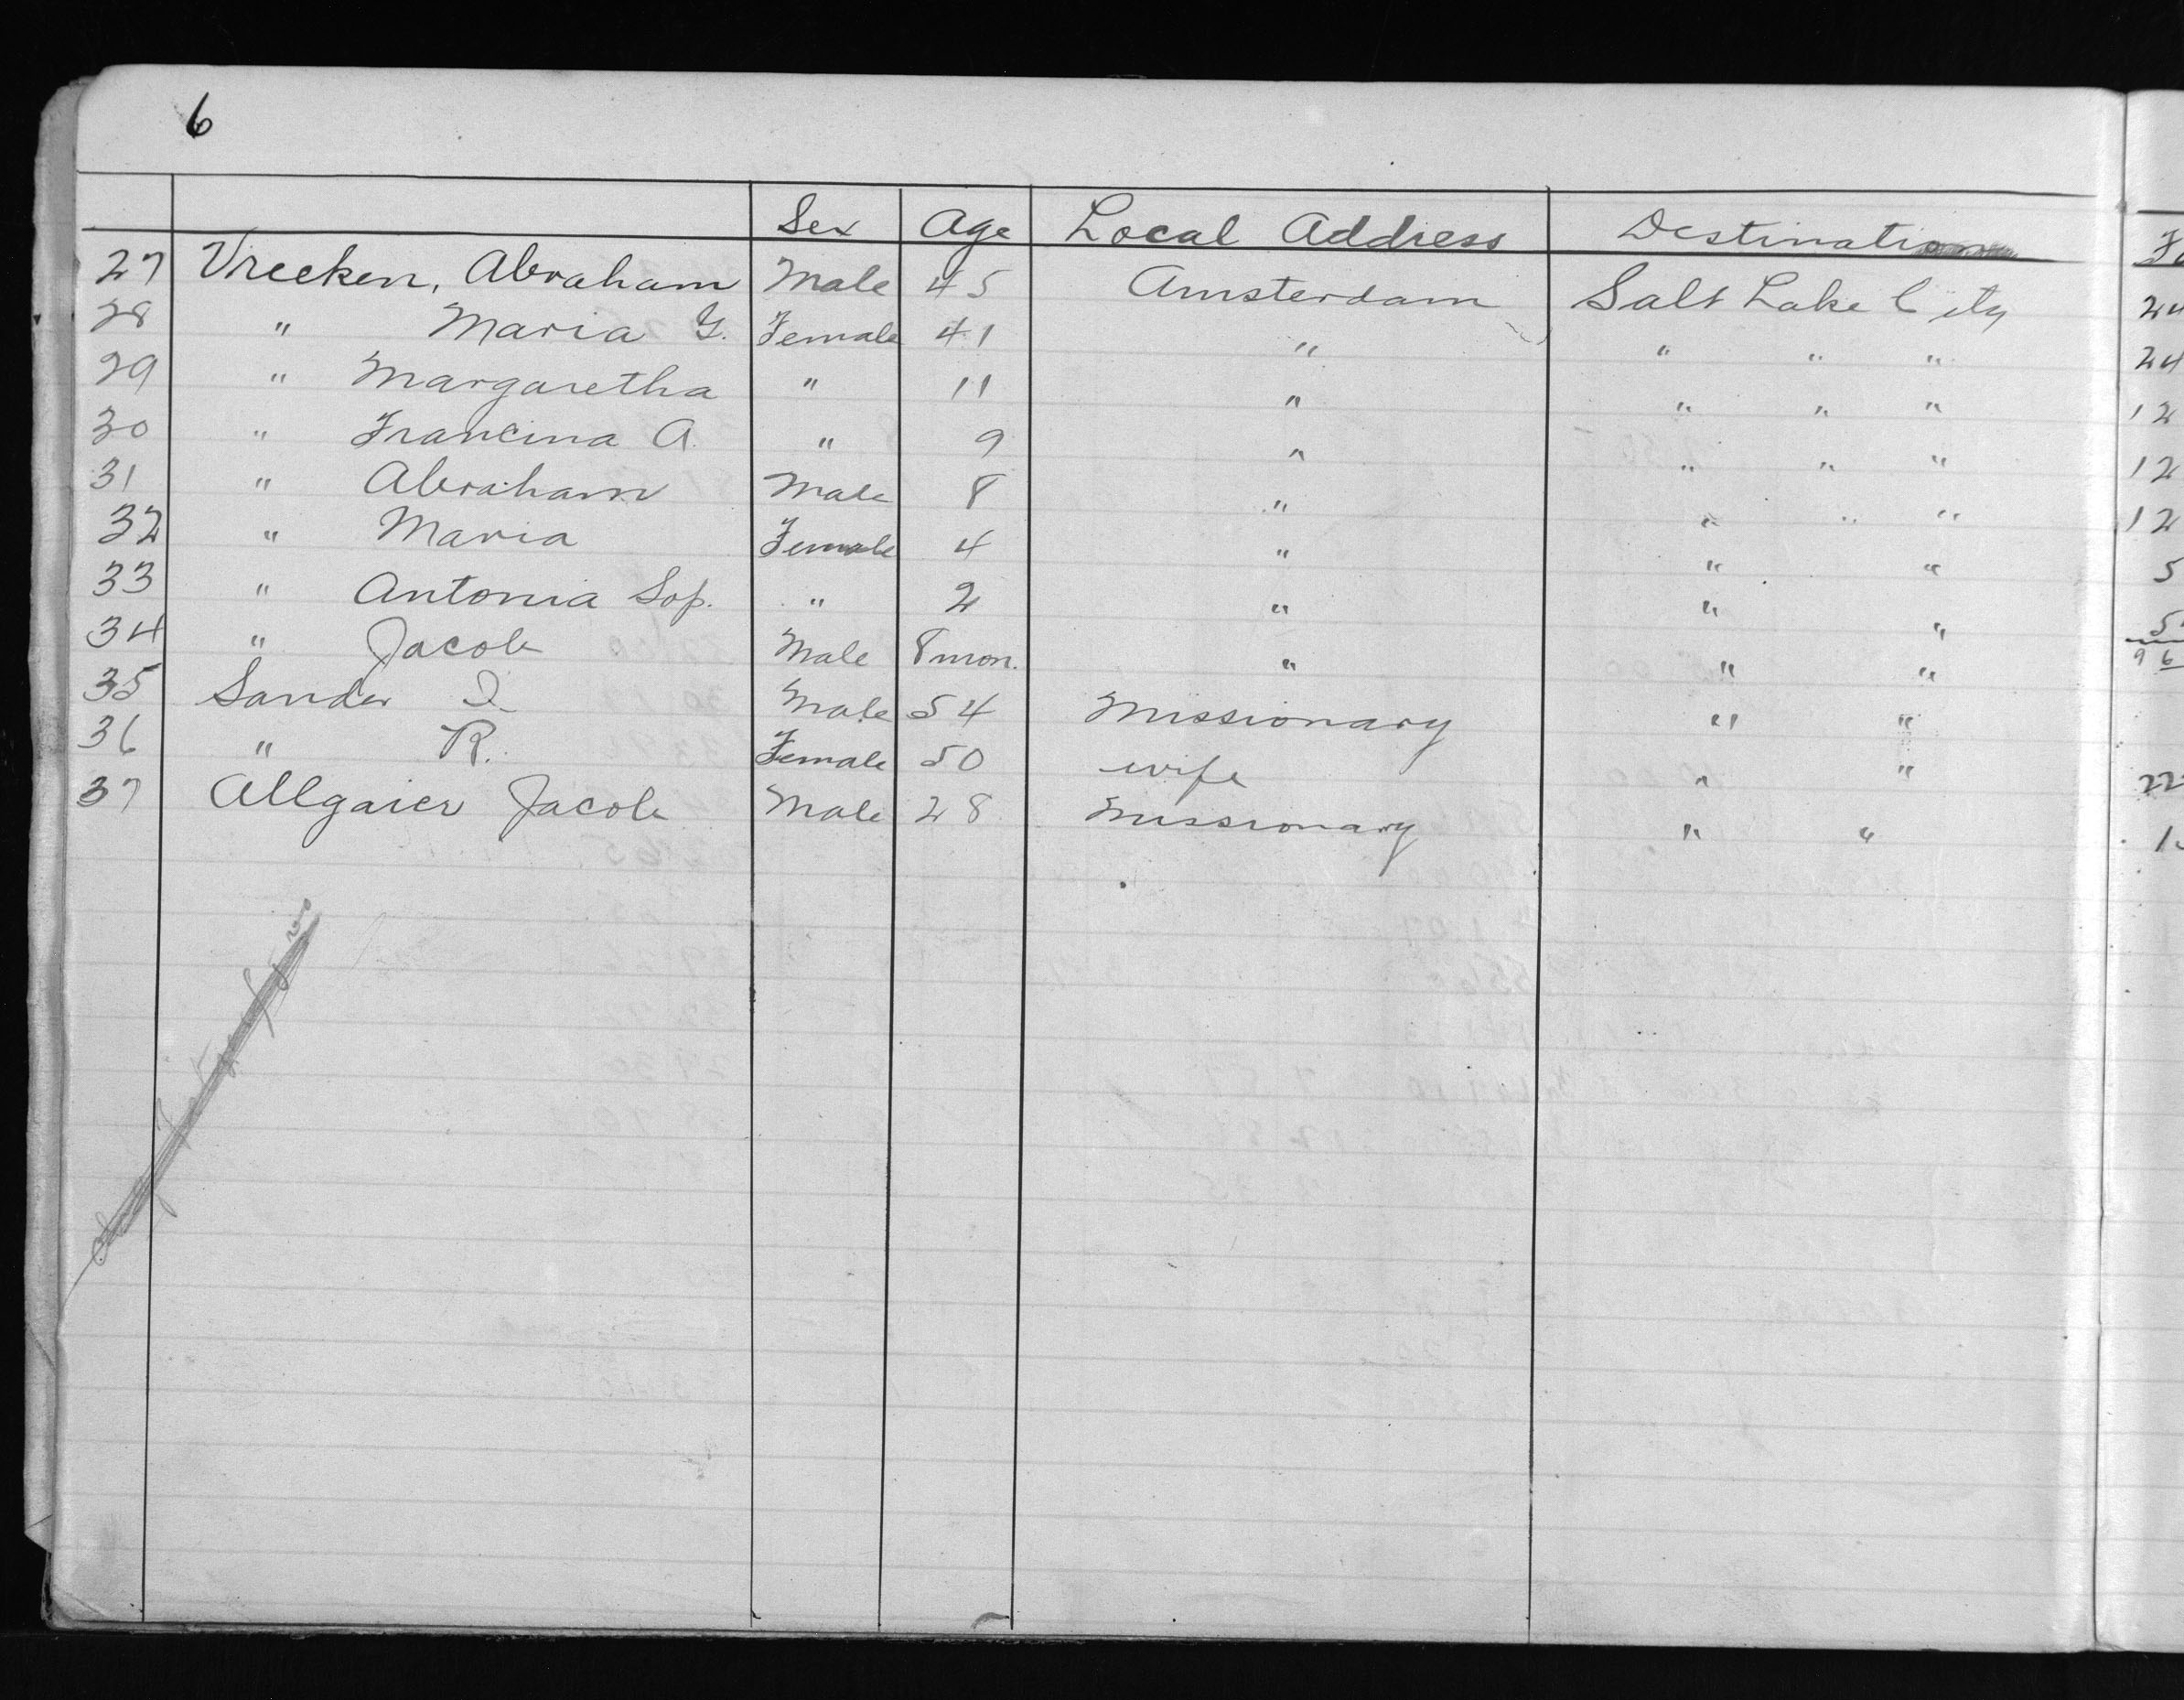 6
Sex Age Local Address Destination Fa
27 Vreeken, Abraham Male 45 Amsterdam Salt Lake City 24
28 " Maria G. Female 41 " " " " 24
29 " Margaretha " 11 " " " " 12
30 " Francina A. " 9 " " " " 12
31 " Abraham Male 8 " " " " 12
32 " Maria Female 4 " " " 5
33 " Antonia Sop. " 2 " " " 5
34 " Jacob Male 8 mon. " " " 96
35 Sander I. Male 54 Missionary " "
36 " R. Female 50 wife " " 22
37 Allgaier Jacob Male 28 Missionary " " 1